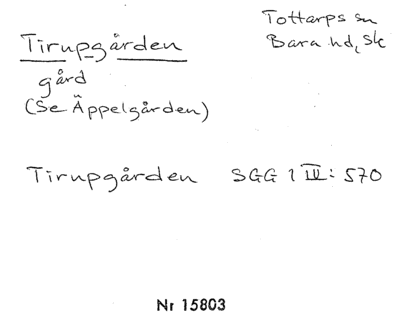 Tirupgården
Tottarps sn
Bara hd, Sk
gård
(Se Äppelgården)
Tirupgården SGG 1 IV: 570
Nr 15803